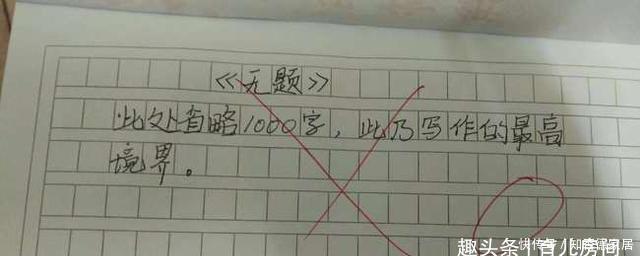 《无题》
此处省略1000字，此乃写作的最高
境界。
趣头条
知
居